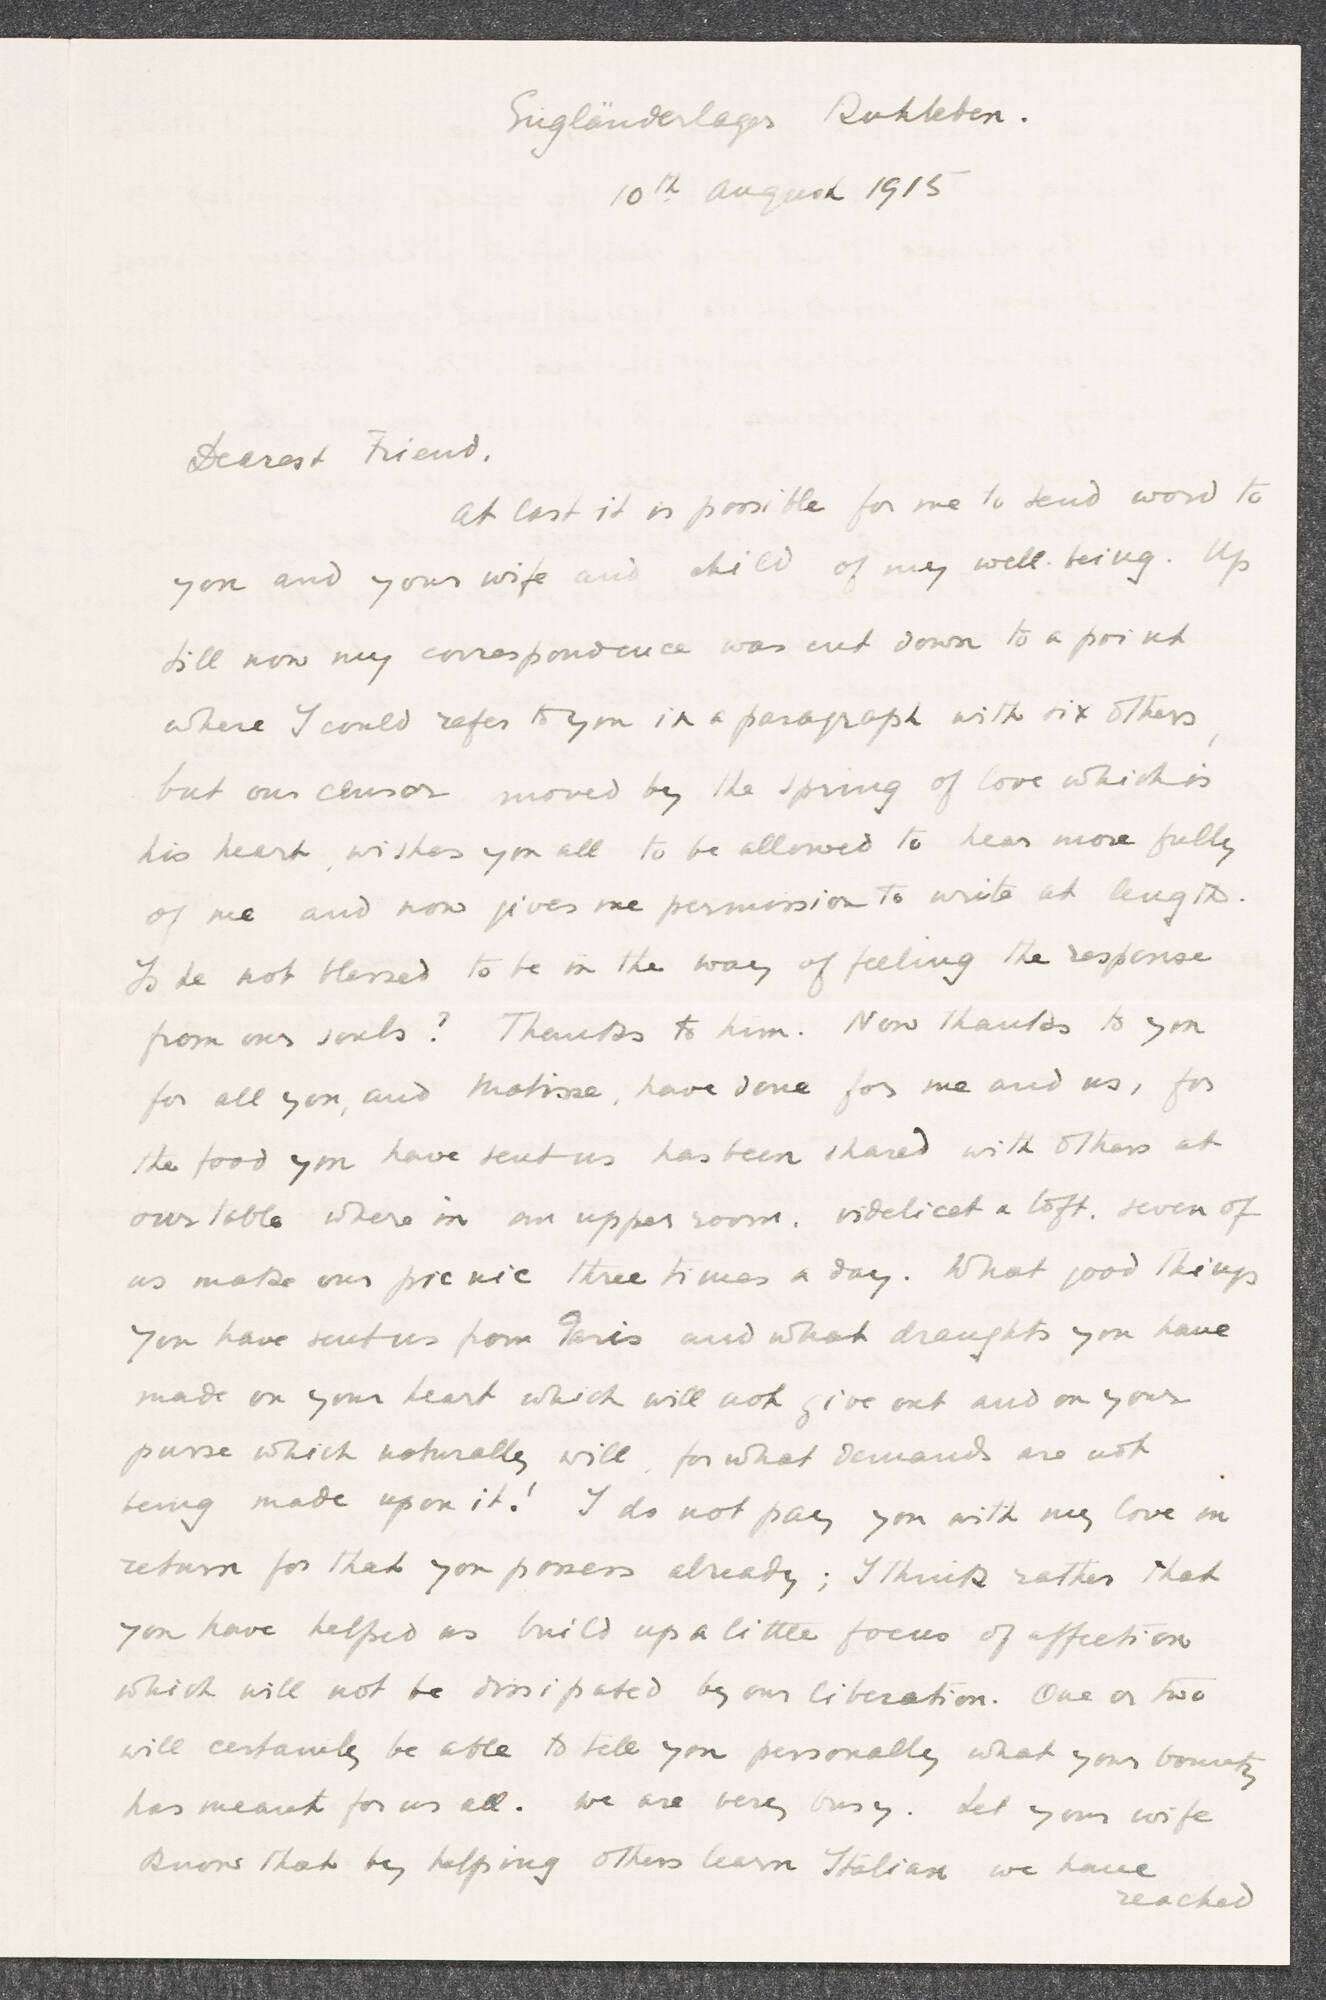 Engländerlager Ruhleben.
10th August 1915
Dearest Friend.
At last it is possible for me to send word to
you and your wife and child of my well being. Up
till now my correspondence was cut down to a point
where I could refer to you in a paragraph with six others,
but our censor moved by the spring of love which is
his heart, wishes you all to be allowed to hear more fully
of me and now gives me permission to write at length.
Is he not blessed to be in the way of feeling the response
from our souls? Thanks to him. Now thanks to you
for all you, and Matisse, have done for me and us, for
the food you have sent us has been shared with others at
our table where in an upper room. videlicet a loft. seven of
us make our pic nic three times a day. What good things
you have sent us from Paris and what draughts you have
made on your heart which will not give out and on your
purse which naturally will, for what demands are not
being made upon it! I do not pay you with my love in
return for that you possess already; I think rather that
you have helped us build up a little focus of affection
which will not be dissipated by our liberation. One or two
will certainly be able to tell you personally what your bounty
has meant for us all. We are very busy. Let your wife
know that by helping others learn Italian we have
reached